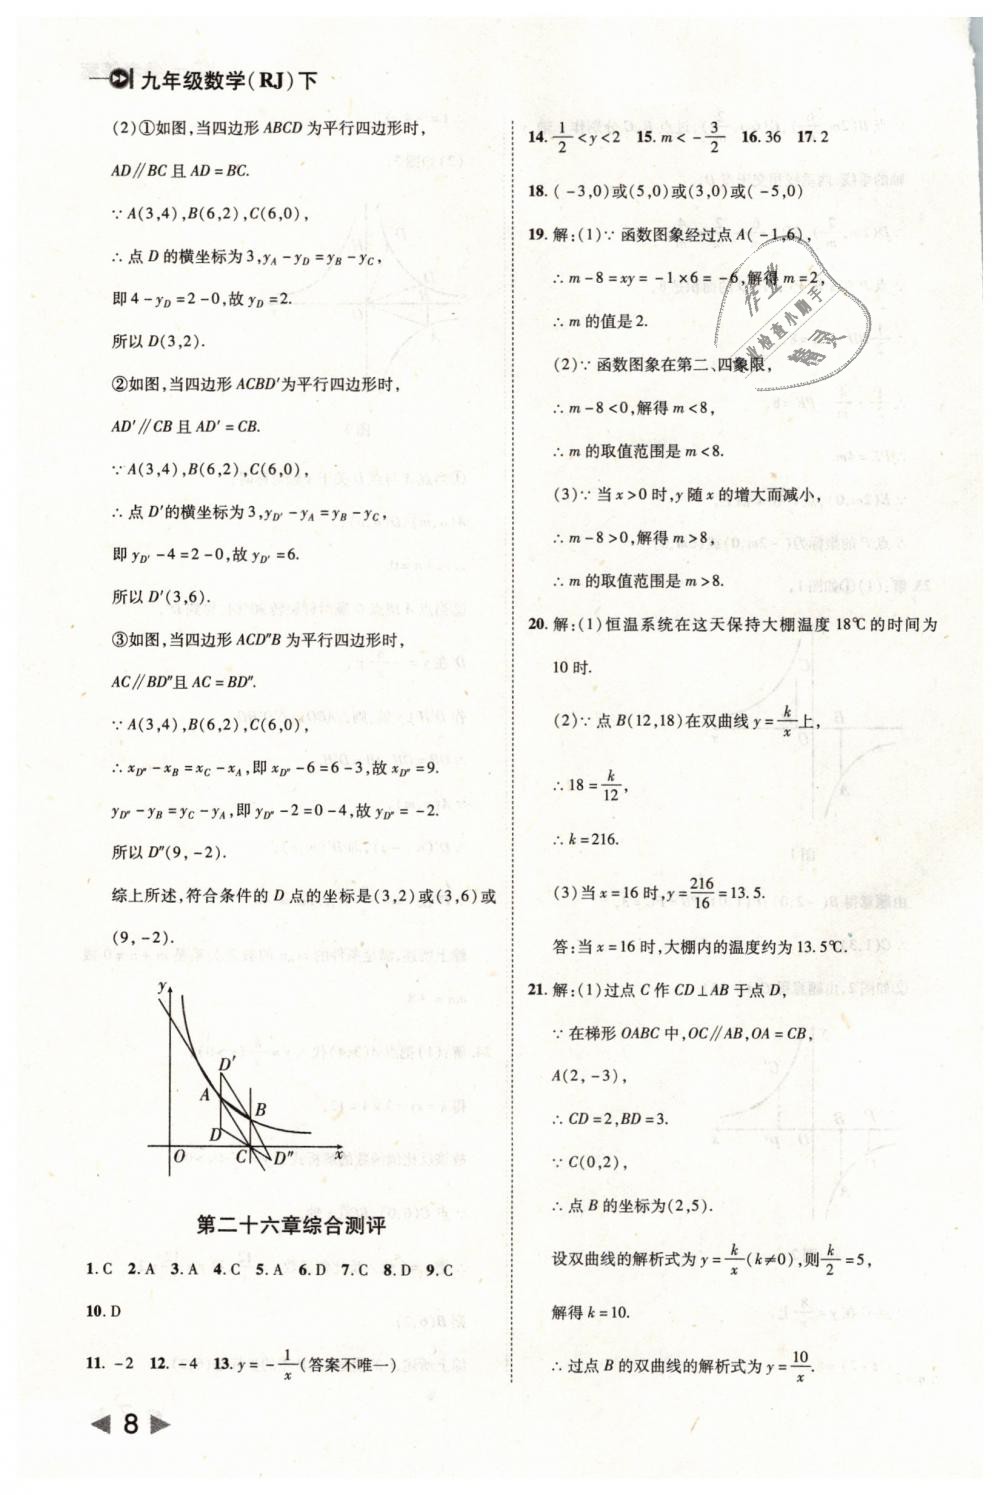 九年级数学(RJ)下
(2)①如图,当四边形 ABCD 为平行四边形时,
AD∥BC 且 AD=BC.
∵A(3,4),B(6,2),C(6,0),
∴点 D 的横坐标为 3,y_A-y_D=y_B-y_C,
即 4-y_D=2-0,故 y_D=2.
所以 D(3,2).
②如图,当四边形 ACBD′为平行四边形时,
AD′∥CB 且 AD′=CB.
∵A(3,4),B(6,2),C(6,0),
∴点 D′的横坐标为 3,y_D′-y_A=y_B-y_C,
即 y_D′-4=2-0,故 y_D′=6.
所以 D′(3,6).
③如图,当四边形 ACD″B 为平行四边形时,
AC∥BD″且 AC=BD″.
∵A(3,4),B(6,2),C(6,0),
∴x_D″-x_B=x_C-x_A,即 x_D″-6=6-3,故 x_D″=9.
y_D″-y_B=y_C-y_A,即 y_D″-2=0-4,故 y_D″=-2.
所以 D″(9,-2).
综上所述,符合条件的 D 点的坐标是(3,2)或(3,6)或
(9,-2).
y
D′
A
B
D
O
C
D″
x
第二十六章综合测评
1.C 2.A 3.A 4.C 5.A 6.D 7.C 8.D 9.C
10.D
11.-2 12.-4 13.y=-1/x(答案不唯一)
8
14.1/2<y<2 15.m<-3/2 16.36 17.2
18.(-3,0)或(5,0)或(3,0)或(-5,0)
19.解:(1)∵函数图象经过点 A(-1,6),
∴m-8=xy=-1×6=-6,解得 m=2,
∴m 的值是 2.
(2)∵函数图象在第二、四象限,
∴m-8<0,解得 m<8,
∴m 的取值范围是 m<8.
(3)∵当 x>0 时,y 随 x 的增大而减小,
∴m-8>0,解得 m>8,
∴m 的取值范围是 m>8.
20.解:(1)恒温系统在这天保持大棚温度 18℃的时间为
10 时.
(2)∵点 B(12,18)在双曲线 y=k/x上,
∴18=k/12,
∴k=216.
(3)当 x=16 时,y=216/16=13.5.
答:当 x=16 时,大棚内的温度约为 13.5℃.
21.解:(1)过点 C 作 CD⊥AB 于点 D,
∵在梯形 OABC 中,OC∥AB,OA=CB,
A(2,-3),
∴CD=2,BD=3.
∵C(0,2),
∴点 B 的坐标为(2,5).
设双曲线的解析式为 y=k/x(k≠0),则k/2=5,
解得 k=10.
∴过点 B 的双曲线的解析式为 y=10/x.
作业
作业检查小助手
精灵